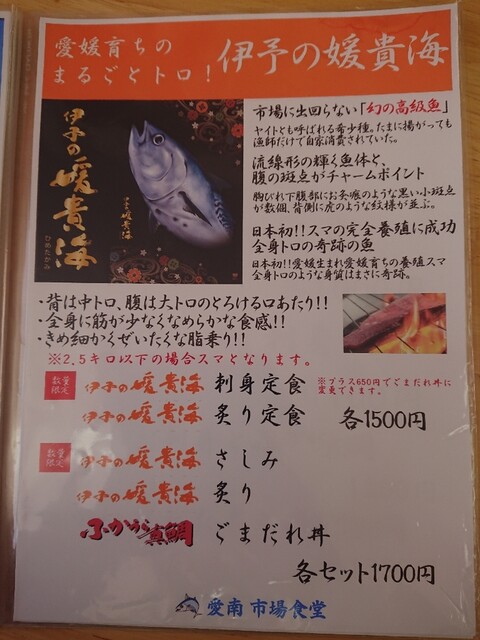 愛媛育ちの
まるごとトロ！
伊予の媛貴海
伊予の媛貴海
ひめたかみ
伊予の媛貴海
市場に出回らない「幻の高級魚」
ヤイトとも呼ばれる希少種。たまに揚がっても
漁師だけで自家消費されていた。
流線形の輝く魚体と、
腹の斑点がチャームポイント
胸びれ下腹部にお灸痕のような黒い小斑点
が数個、背側に虎のような紋様が並ぶ。
日本初!!スマの完全養殖に成功
全身トロの奇跡の魚
日本初!!愛媛生まれ愛媛育ちの養殖スマ
全身トロのような身質はまさに奇跡。
・背は中トロ、腹は大トロのとろける口あたり!!
・全身に筋が少なくなめらかな食感!!
・きめ細かくぜいたくな脂乗り!!
※2.5キロ以下の場合スマとなります。
数量限定
伊予の媛貴海 刺身定食
※プラス650円でごまだれ丼に
変更できます。
伊予の媛貴海 炙り定食
各1500円
数量限定
伊予の媛貴海 さしみ
伊予の媛貴海 炙り
ふかうら真鯛 ごまだれ丼
各セット1700円
愛南 市場食堂